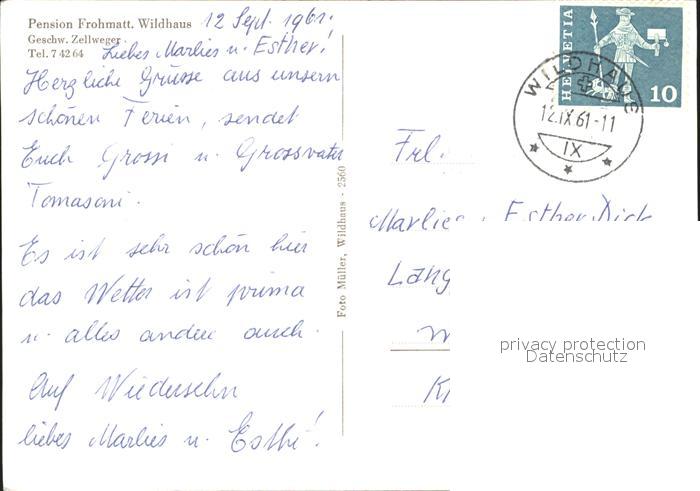 Pension Frohmatt. Wildhaus
Geschw. Zellweger
Tel. 7 42 64
12 Sept. 1961.
Liebes Marlies u. Esther!
Herzliche Grüsse aus unsern
schönen Ferien, sendet
Euch Grossi u. Grossvater
Tomasoni.
Es ist sehr schön hier
das Wetter ist prima
u. alles andere auch.
Auf Wiedersehn
liebes Marlies u. Esthi!
Foto Müller, Wildhaus - 2560
HELVETIA
10
WILDHAUS
12.IX.61-11
IX
Frl.
Marlies Esther
Lang
privacy protection
Datenschutz